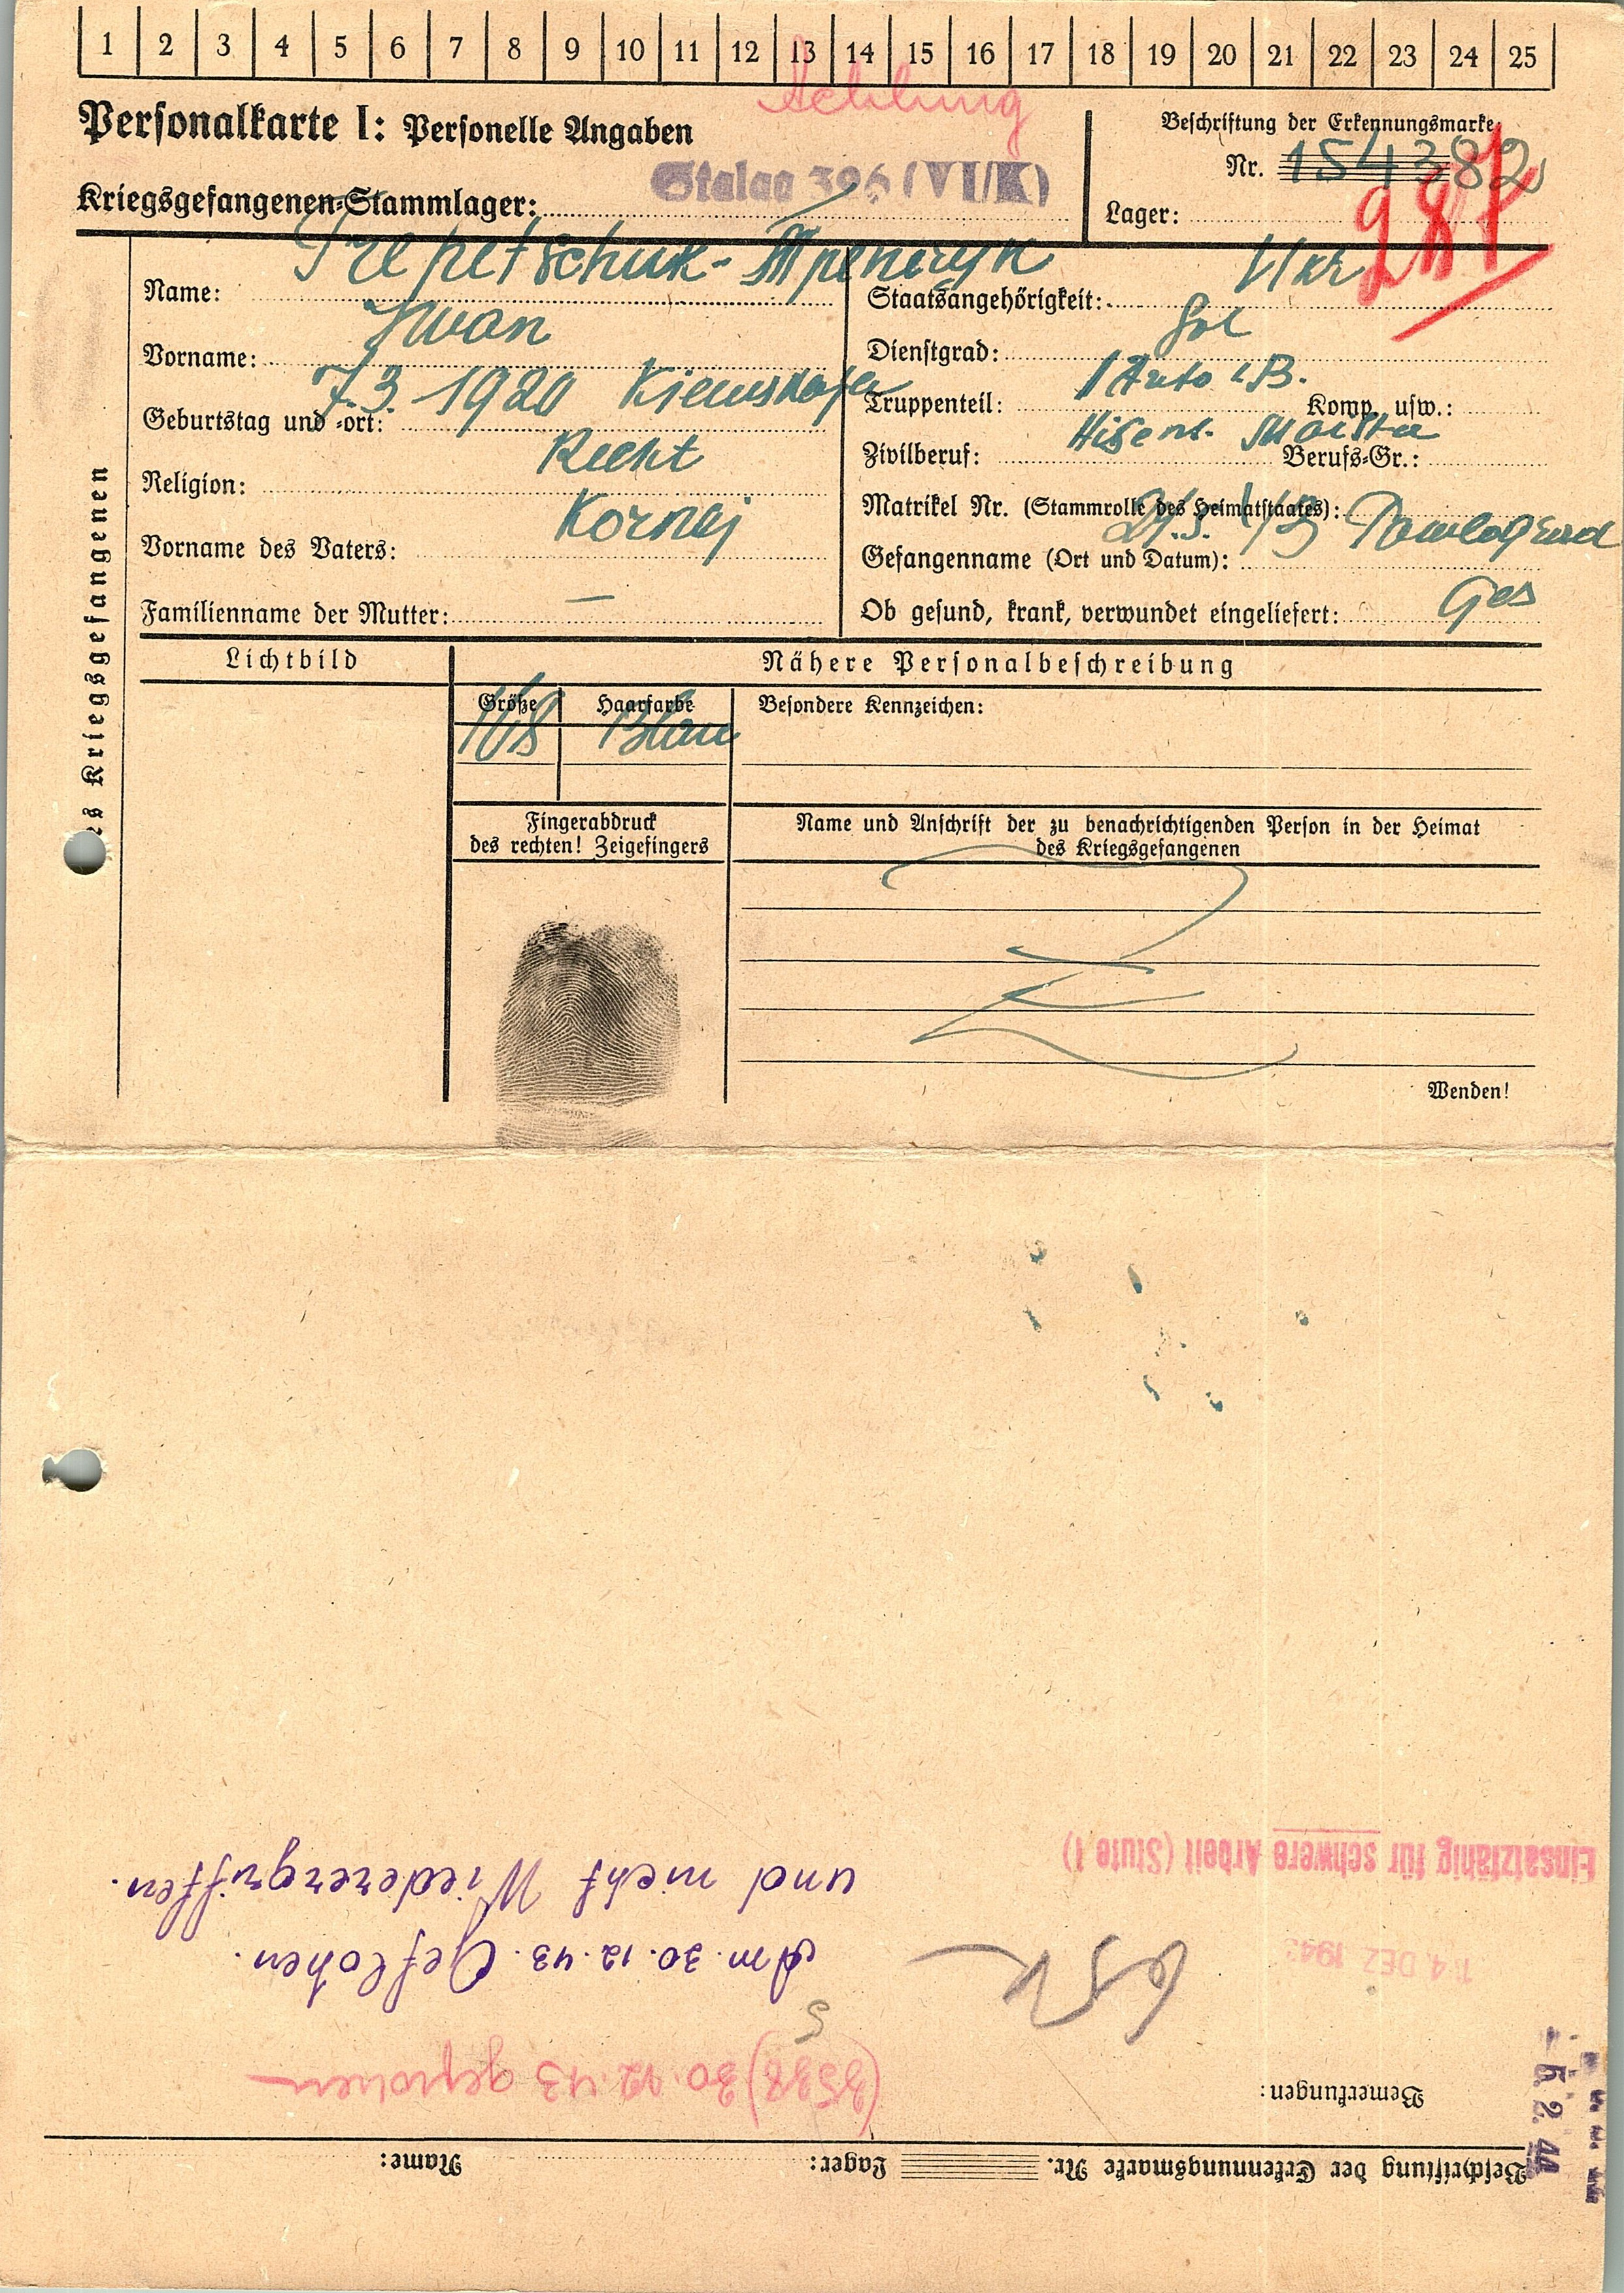 1 2 3 4 5 6 7 8 9 10 11 12 13 14 15 16 17 18 19 20 21 22 23 24 25
Achtung
Personalkarte I: Personelle Angaben
Kriegsgefangenen-Stammlager: Stalag 326 (VI/K)
Beschriftung der Erkennungsmarke
Nr. 154382
Lager:
Name:
Vorname: Iwan
Geburtstag und -ort: 7.3. 1920
Religion:
Vorname des Vaters: Kornej
Familienname der Mutter: —
Staatsangehörigkeit: Ukr
Dienstgrad: Sol
Truppenteil: Komp. usw.:
Zivilberuf: Berufs-Gr.:
Matrikel Nr. (Stammrolle des Heimatstaates):
Gefangenname (Ort und Datum):
Ob gesund, krank, verwundet eingeliefert: Ges
es Kriegsgefangenen
Lichtbild
Nähere Personalbeschreibung
Größe Haarfarbe Besondere Kennzeichen:
168
Fingerabdruck
des rechten! Zeigefingers
Name und Anschrift der zu benachrichtigenden Person in der Heimat
des Kriegsgefangenen
Wenden!
Beschriftung der Erkennungsmarke Nr. Lager: Name:
Bemerkungen:
- 5. 2. 44
30.12.43 geflohen
Am. 30.12.43. Geflohen.
und nicht Wiederergriffen.
14. DEZ 194
Einsatzfähig für schwere Arbeit (Stufe I)